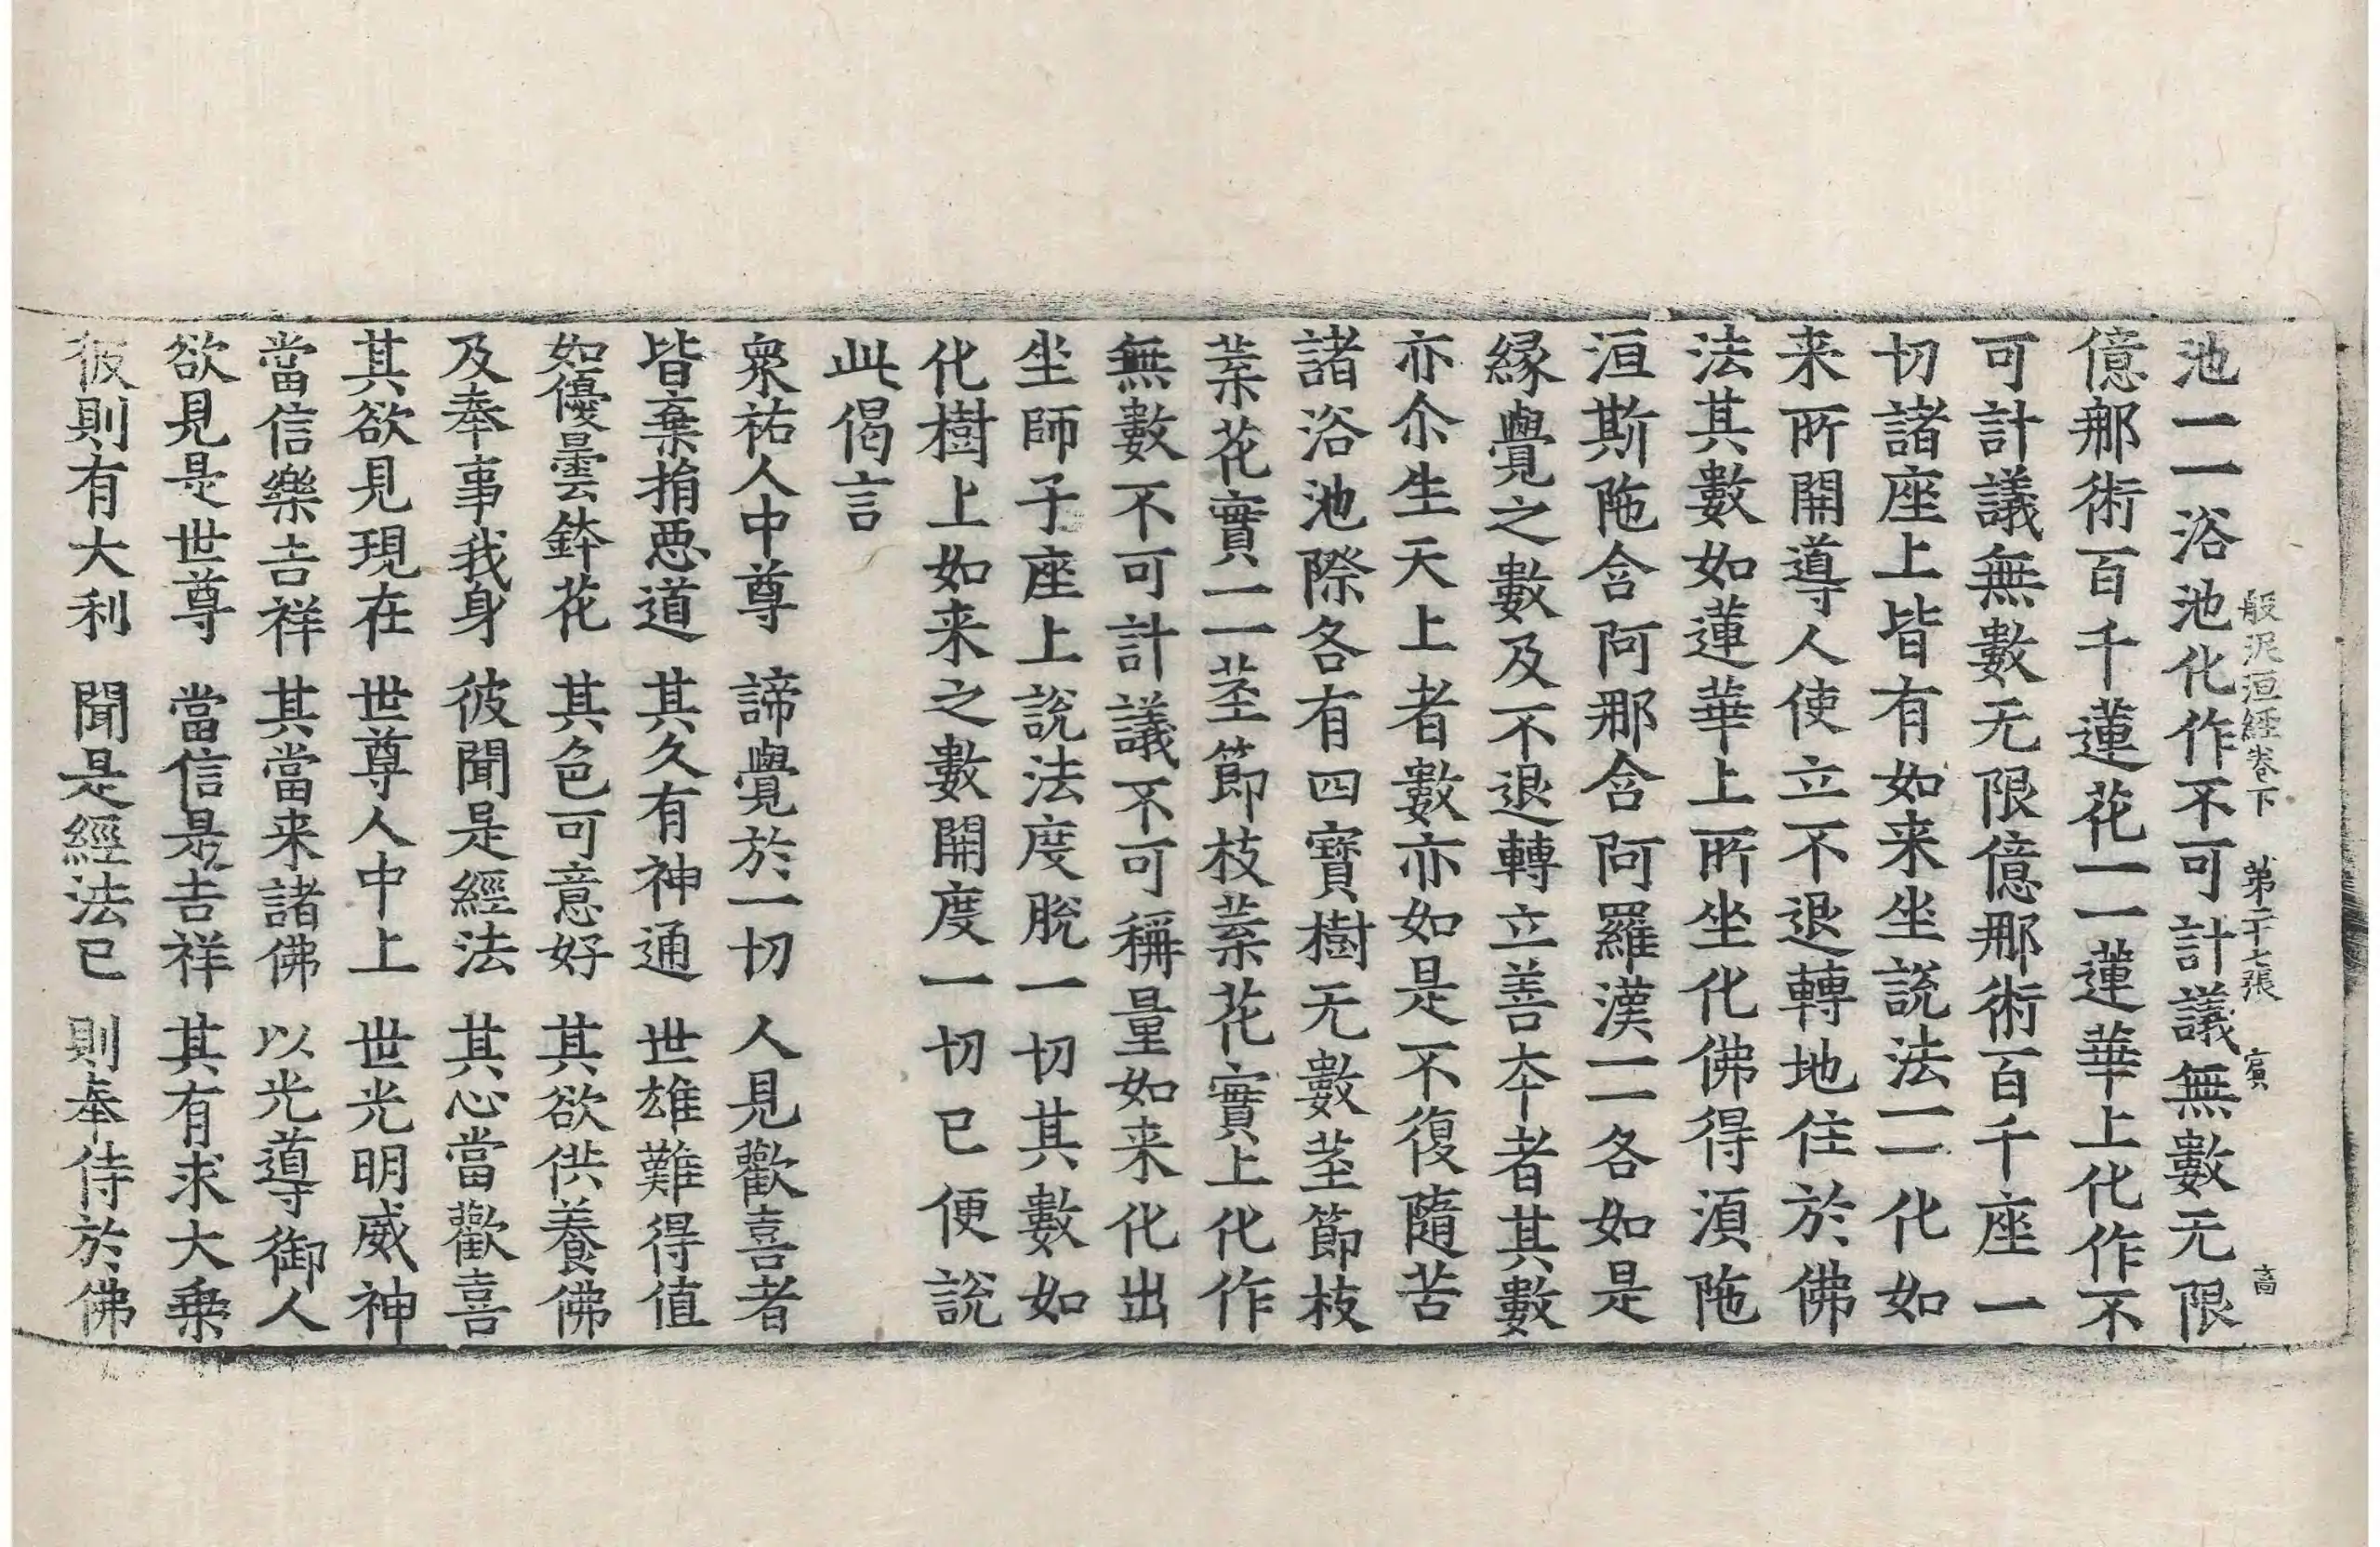 般泥洹經卷下　第二十七張　賓　高
池一一浴池化作不可計議無數无限
億那術百千蓮花一一蓮華上化作不
可計議無數无限億那術百千座一
切諸座上皆有如来坐說法一一化如
来所開導人使立不退轉地住於佛
法其數如蓮華上所坐化佛得湏陁
洹斯陁含阿那含阿羅漢一一各如是
緣覺之數及不退轉立善夲者其數
亦尒生天上者數亦如是不復隨苦
諸浴池際各有四寶樹无數莖節枝
葉花實一一莖節枝葉花實上化作
無數不可計議不可稱量如来化出
坐師子座上說法度脫一切其數如
化樹上如来之數開度一切已便說
此偈言
衆祐人中尊　諦覺於一切　人見歡喜者
皆棄捐惡道　其久有神通　世雄難得值
如優曇鉢花　其色可意好　其欲供養佛
及奉事我身　彼聞是經法　其心當歡喜
其欲見現在　世尊人中上　世光明威神
當信樂吉祥　其當来諸佛　以光導御人
欲見是世尊　當信是吉祥　其有求大乗
彼則有大利　聞是經法已　則奉侍於佛